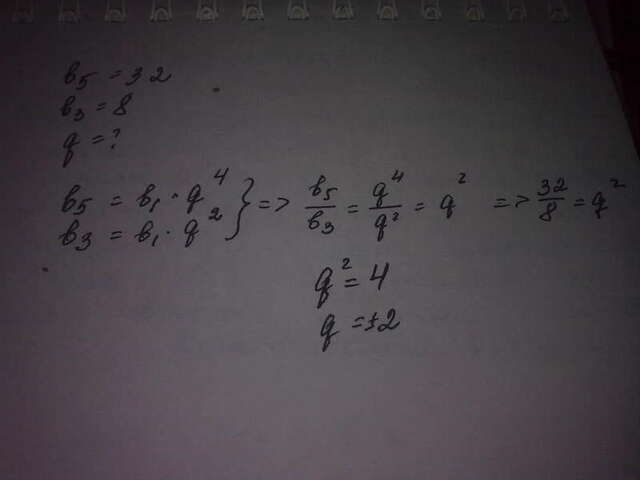 b₅ = 32
b₃ = 8
q = ?
b₅ = b₁ · q⁴
b₃ = b₁ · q² } => b₅/b₃ = q⁴/q² = q² => 32/8 = q²
q² = 4
q = ±2